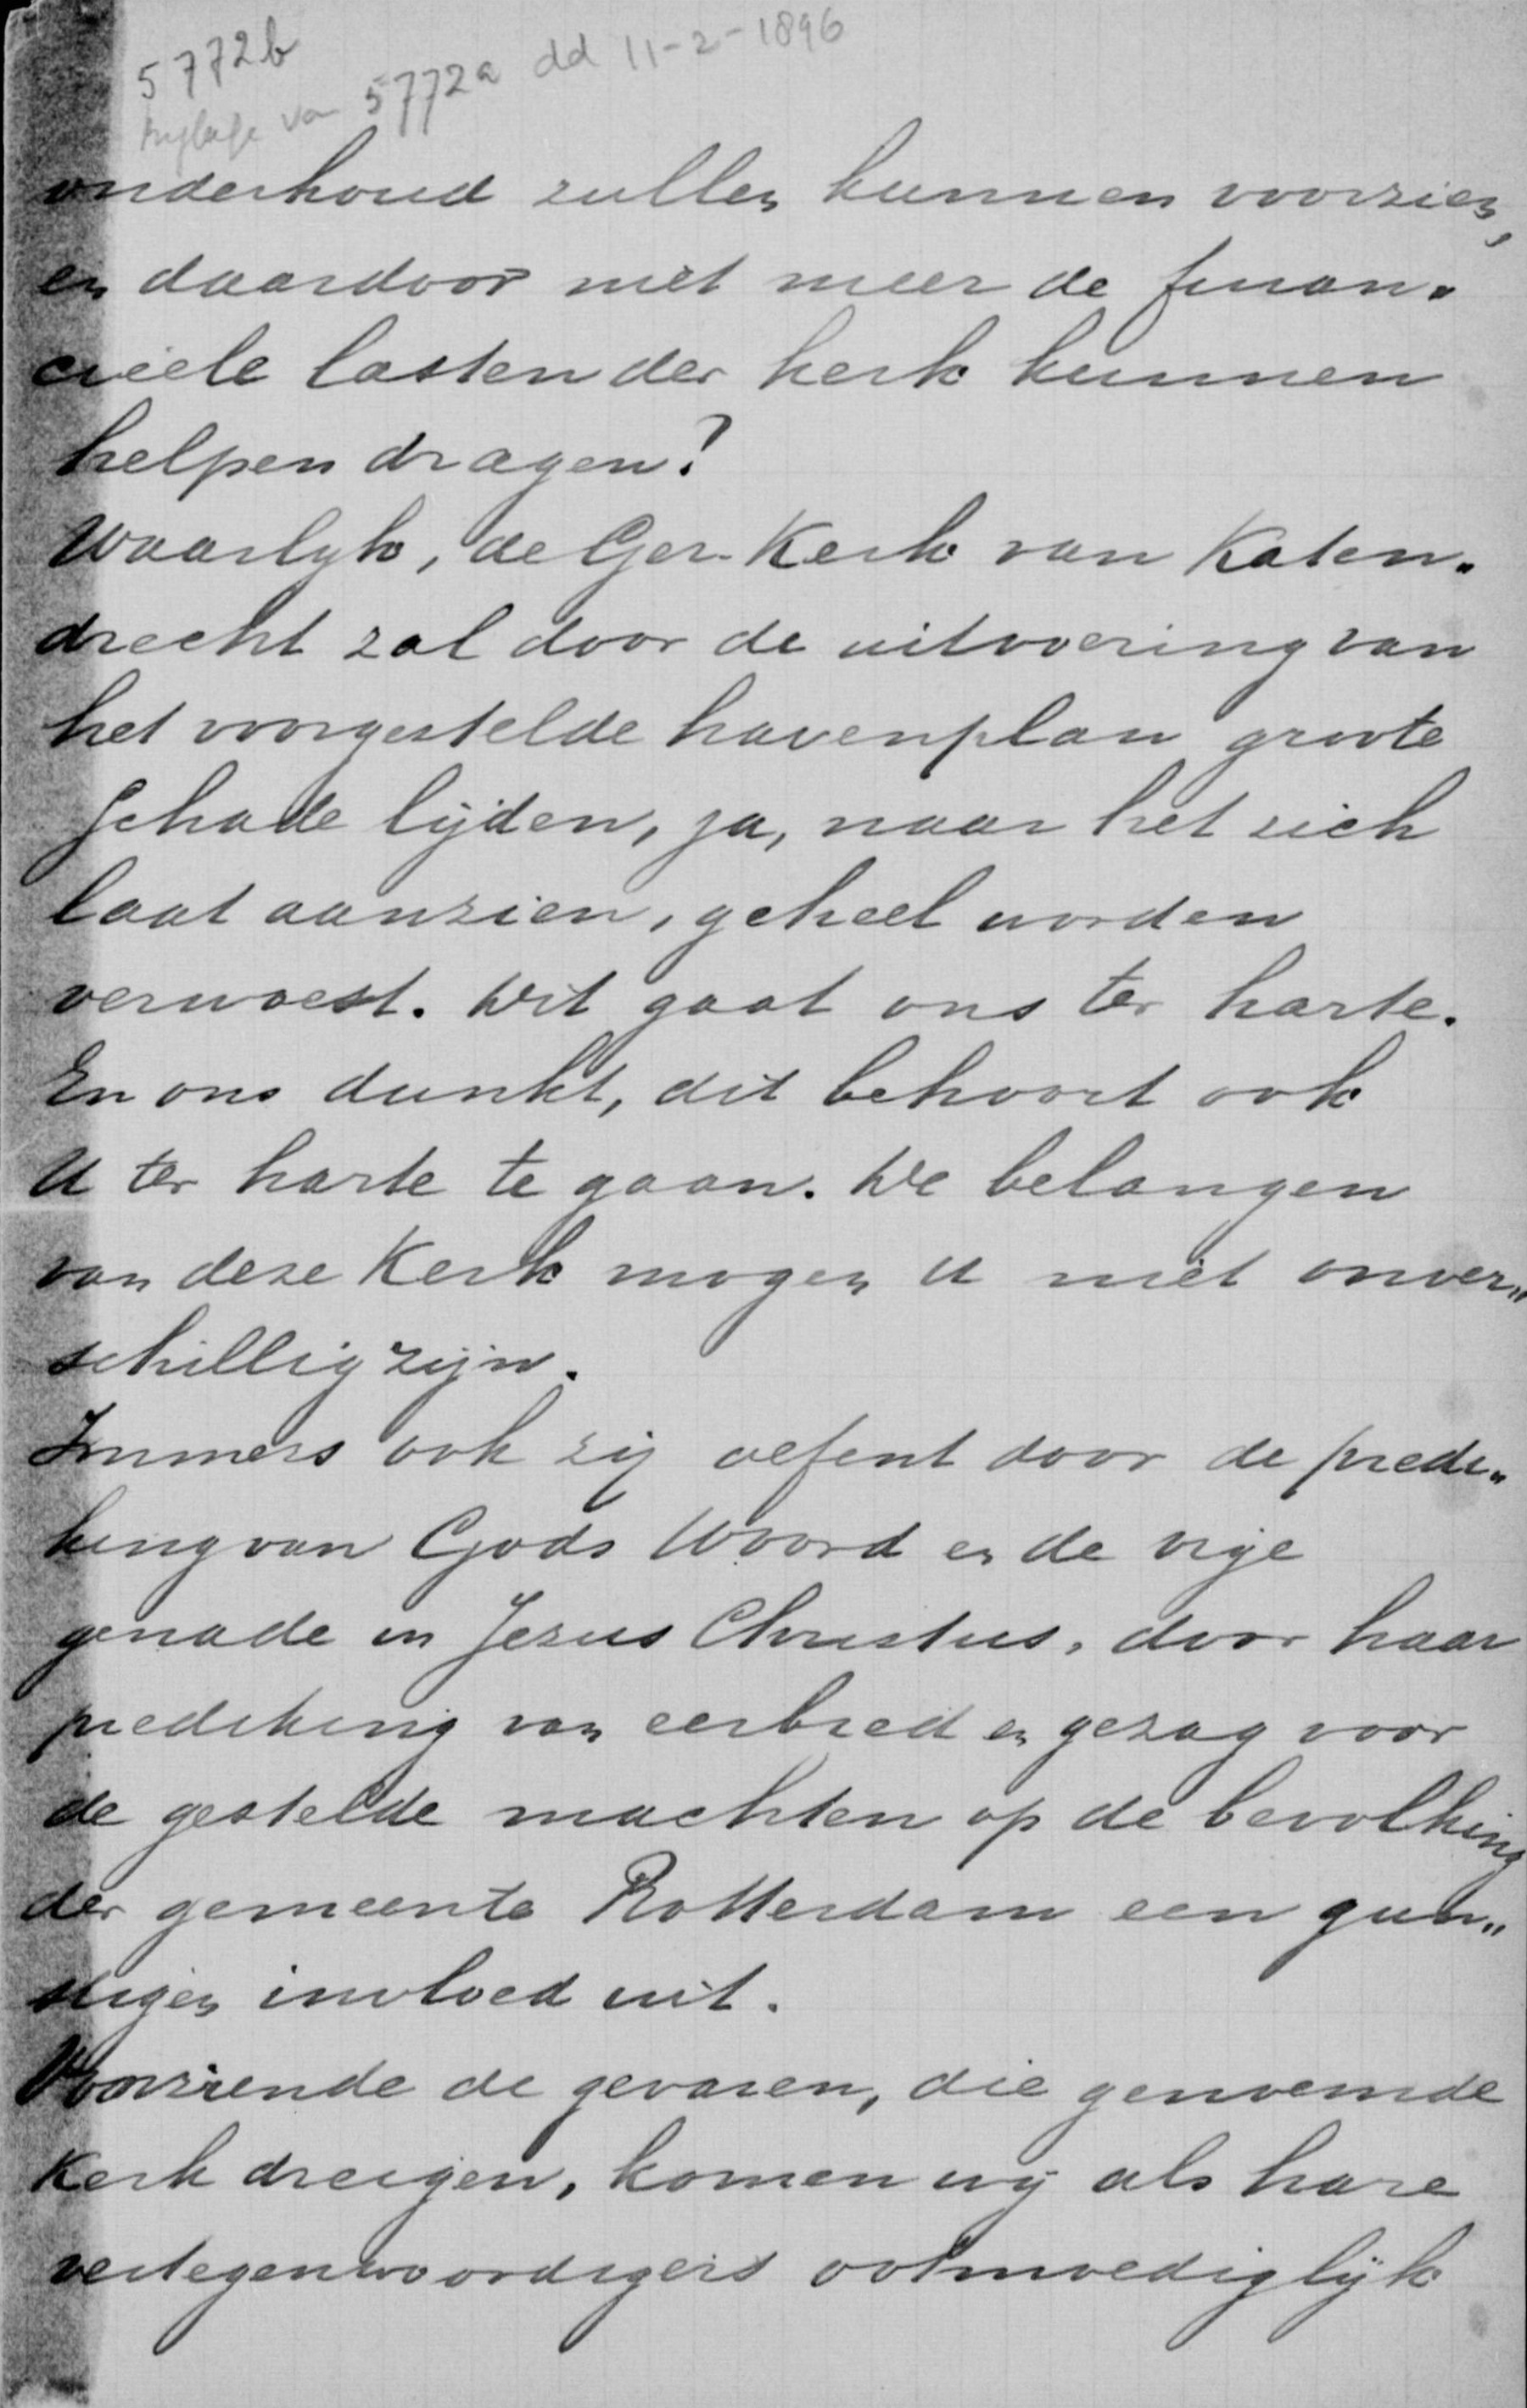 5772b
bijlage van 5772a dd 11-2-1896
onderhoud zullen kunnen voorzien,
en daardoor niet meer de finan„
cieele lasten der kerk kunnen
helpen dragen?
Waarlijk, de Ger. Kerk van Katen„
drecht zal door de uitvoering van
het voorgestelde havenplan groote
schade lijden, ja, naar het zich
laat aanzien, geheel worden
verwoest. Dit gaat ons ter harte.
En ons dunkt, dit behoort ook
U ter harte te gaan. De belangen
van deze Kerk mogen U niet onver„
schillig zijn.
Immers ook zij oefent door de predi„
king van Gods Woord en de vrije
genade in Jezus Christus, door haar
prediking van eerbied en gezag voor
de gestelde machten op de bevolking
der gemeente Rotterdam een gun„
stigen invloed uit.
Voorziende de gevaren, die genoemde
Kerk dreigen, komen wij als hare
vertegenwoordigers ootmoediglijk